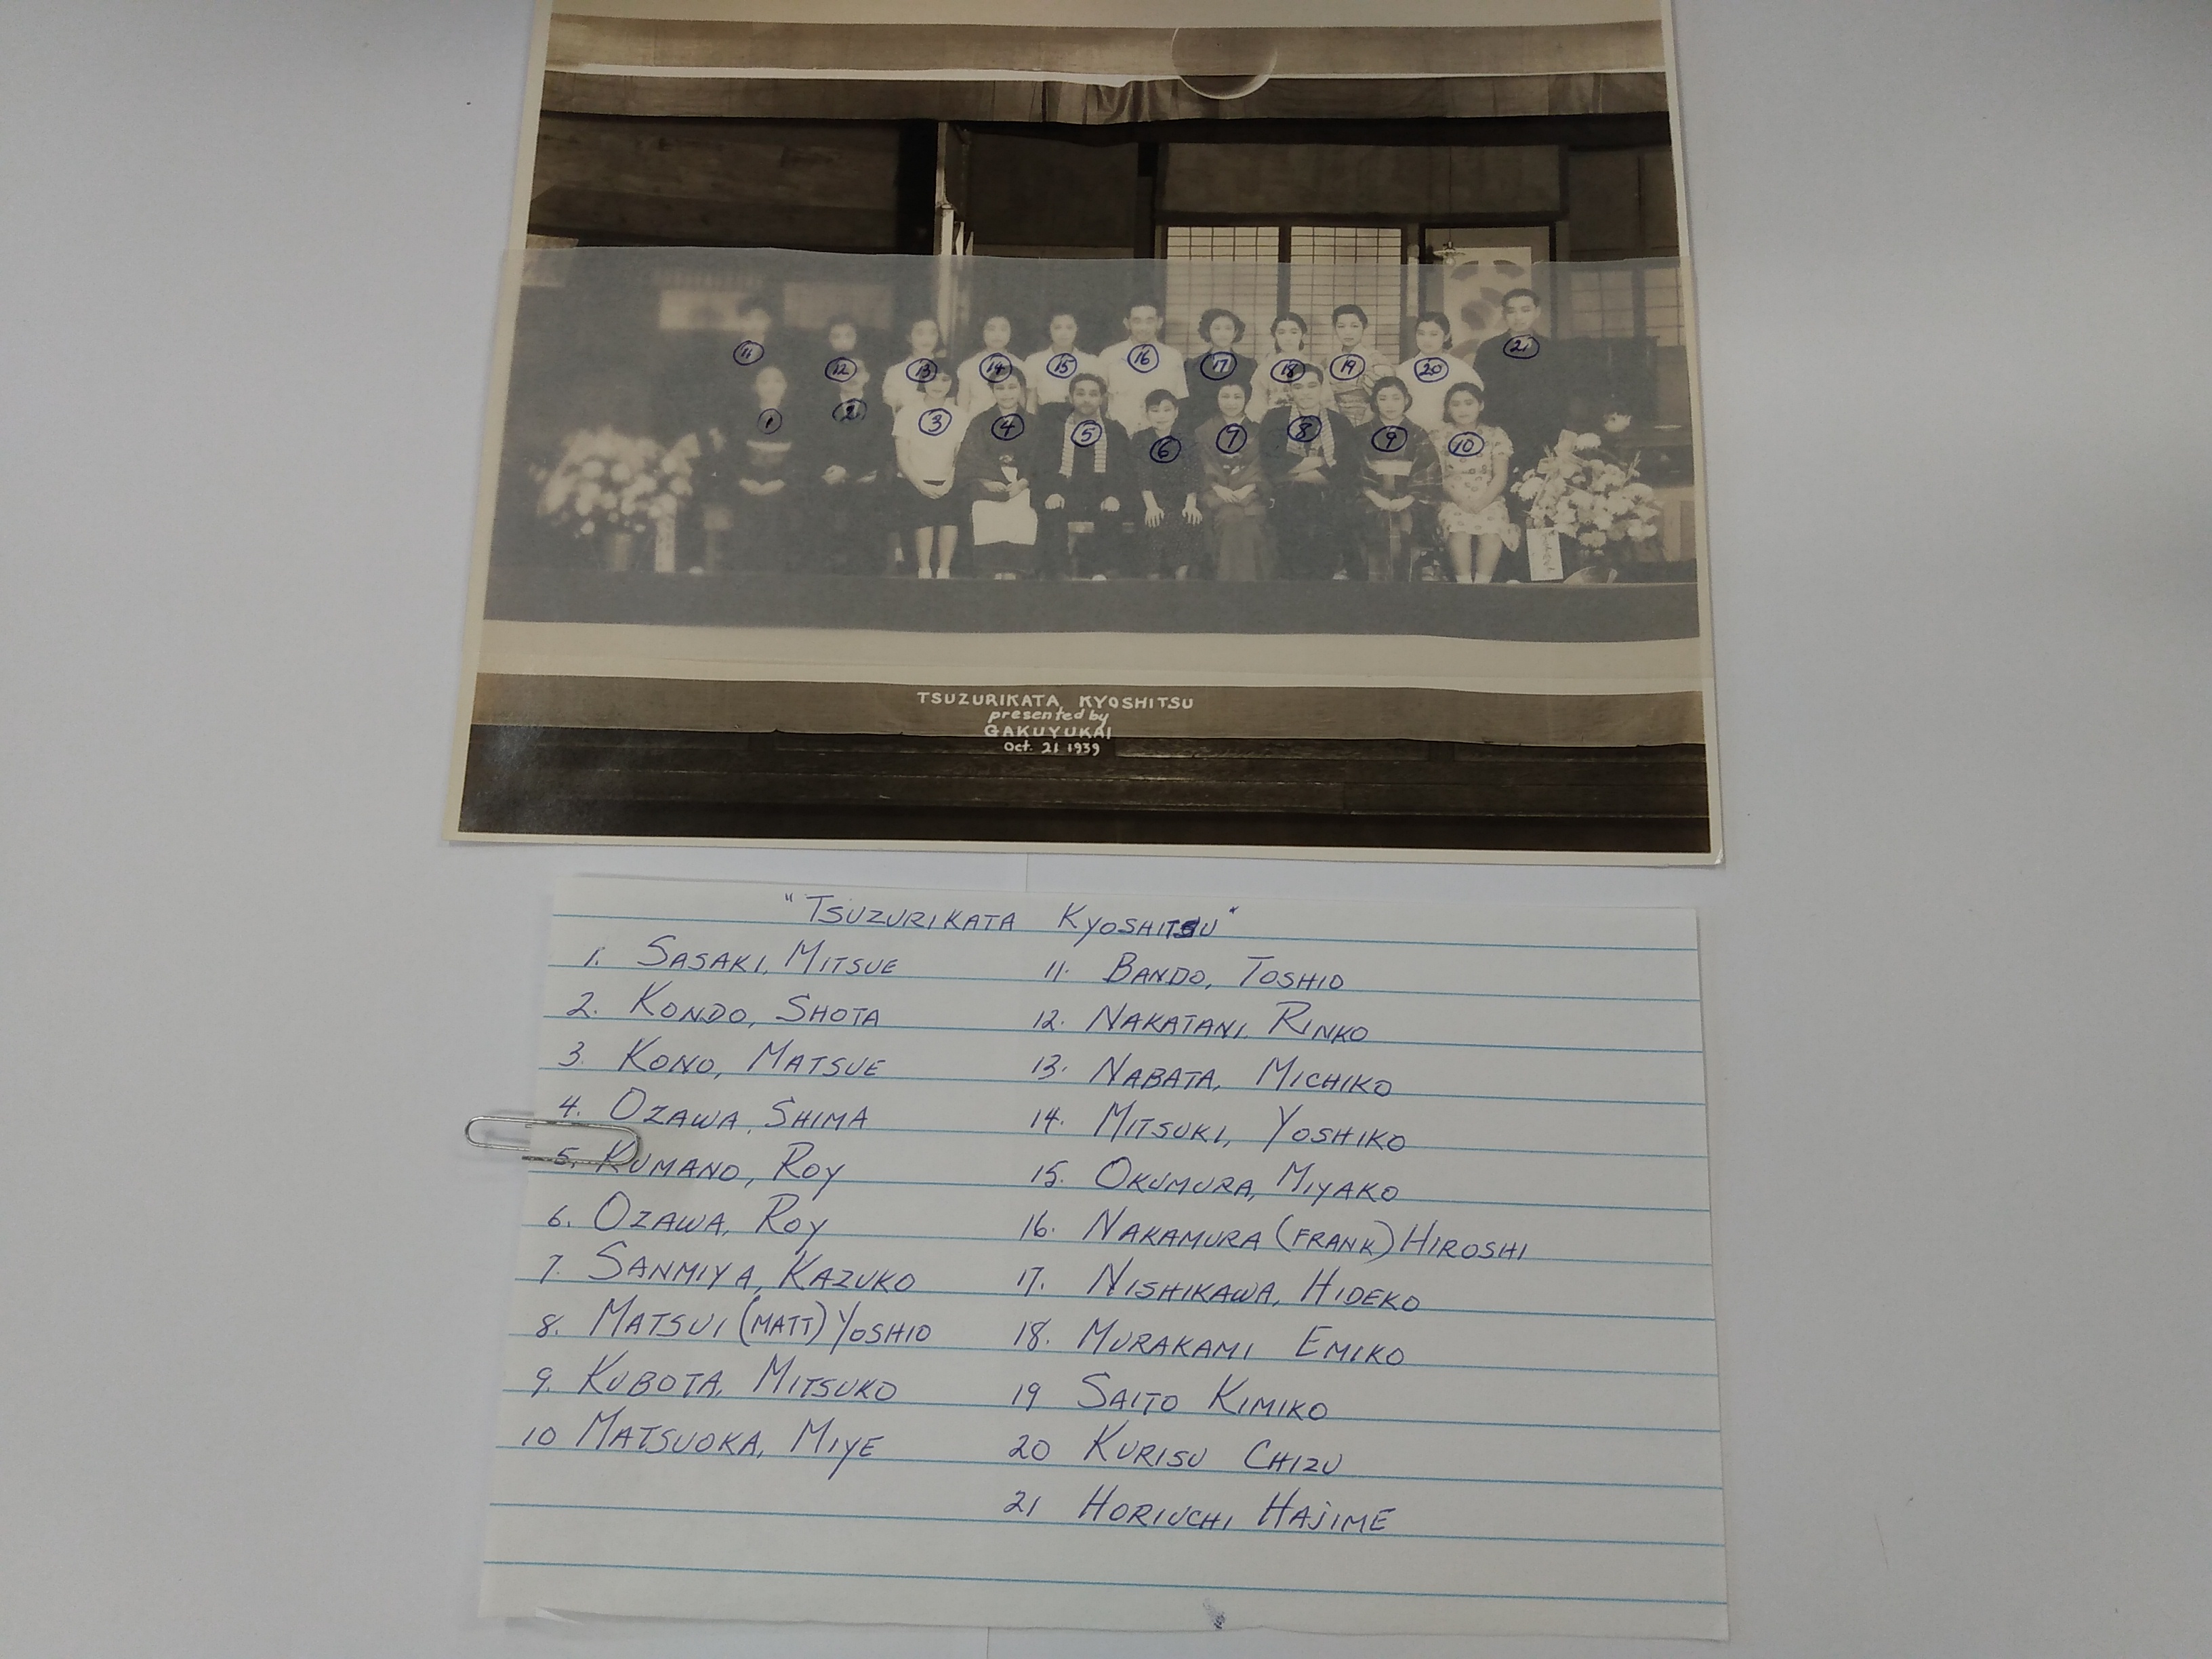 11
12
13
14
15
16
17
18
19
20
21
1
2
3
4
5
6
7
8
9
10
TSUZURIKATA KYOSHITSU
presented by
GAKUYUKAI
Oct. 21 1939
"TSUZURIKATA KYOSHITSU"
1. SASAKI, MITSUE
2. KONDO, SHOTA
3. KONO, MATSUE
4. OZAWA, SHIMA
5. KUMANO, ROY
6. OZAWA, ROY
7. SANMIYA, KAZUKO
8. MATSUI (MATT) YOSHIO
9. KUBOTA, MITSUKO
10 MATSUOKA, MIYE
11. BANDO, TOSHIO
12. NAKATANI, RINKO
13. NABATA, MICHIKO
14. MITSUKI, YOSHIKO
15. OKUMURA, MIYAKO
16. NAKAMURA (FRANK) HIROSHI
17. NISHIKAWA, HIDEKO
18. MURAKAMI EMIKO
19 SAITO KIMIKO
20 KURISU CHIZU
21 HORIUCHI HAJIME